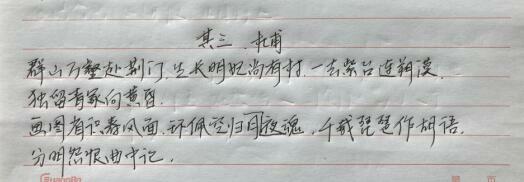 其三 杜甫
群山万壑赴荆门,生长明妃尚有村.一去紫台连朔漠,
独留青冢向黄昏.
画图省识春风面,环佩空归月夜魂,千载琵琶作胡语,
分明怨恨曲中论.
GuangBo
第 页